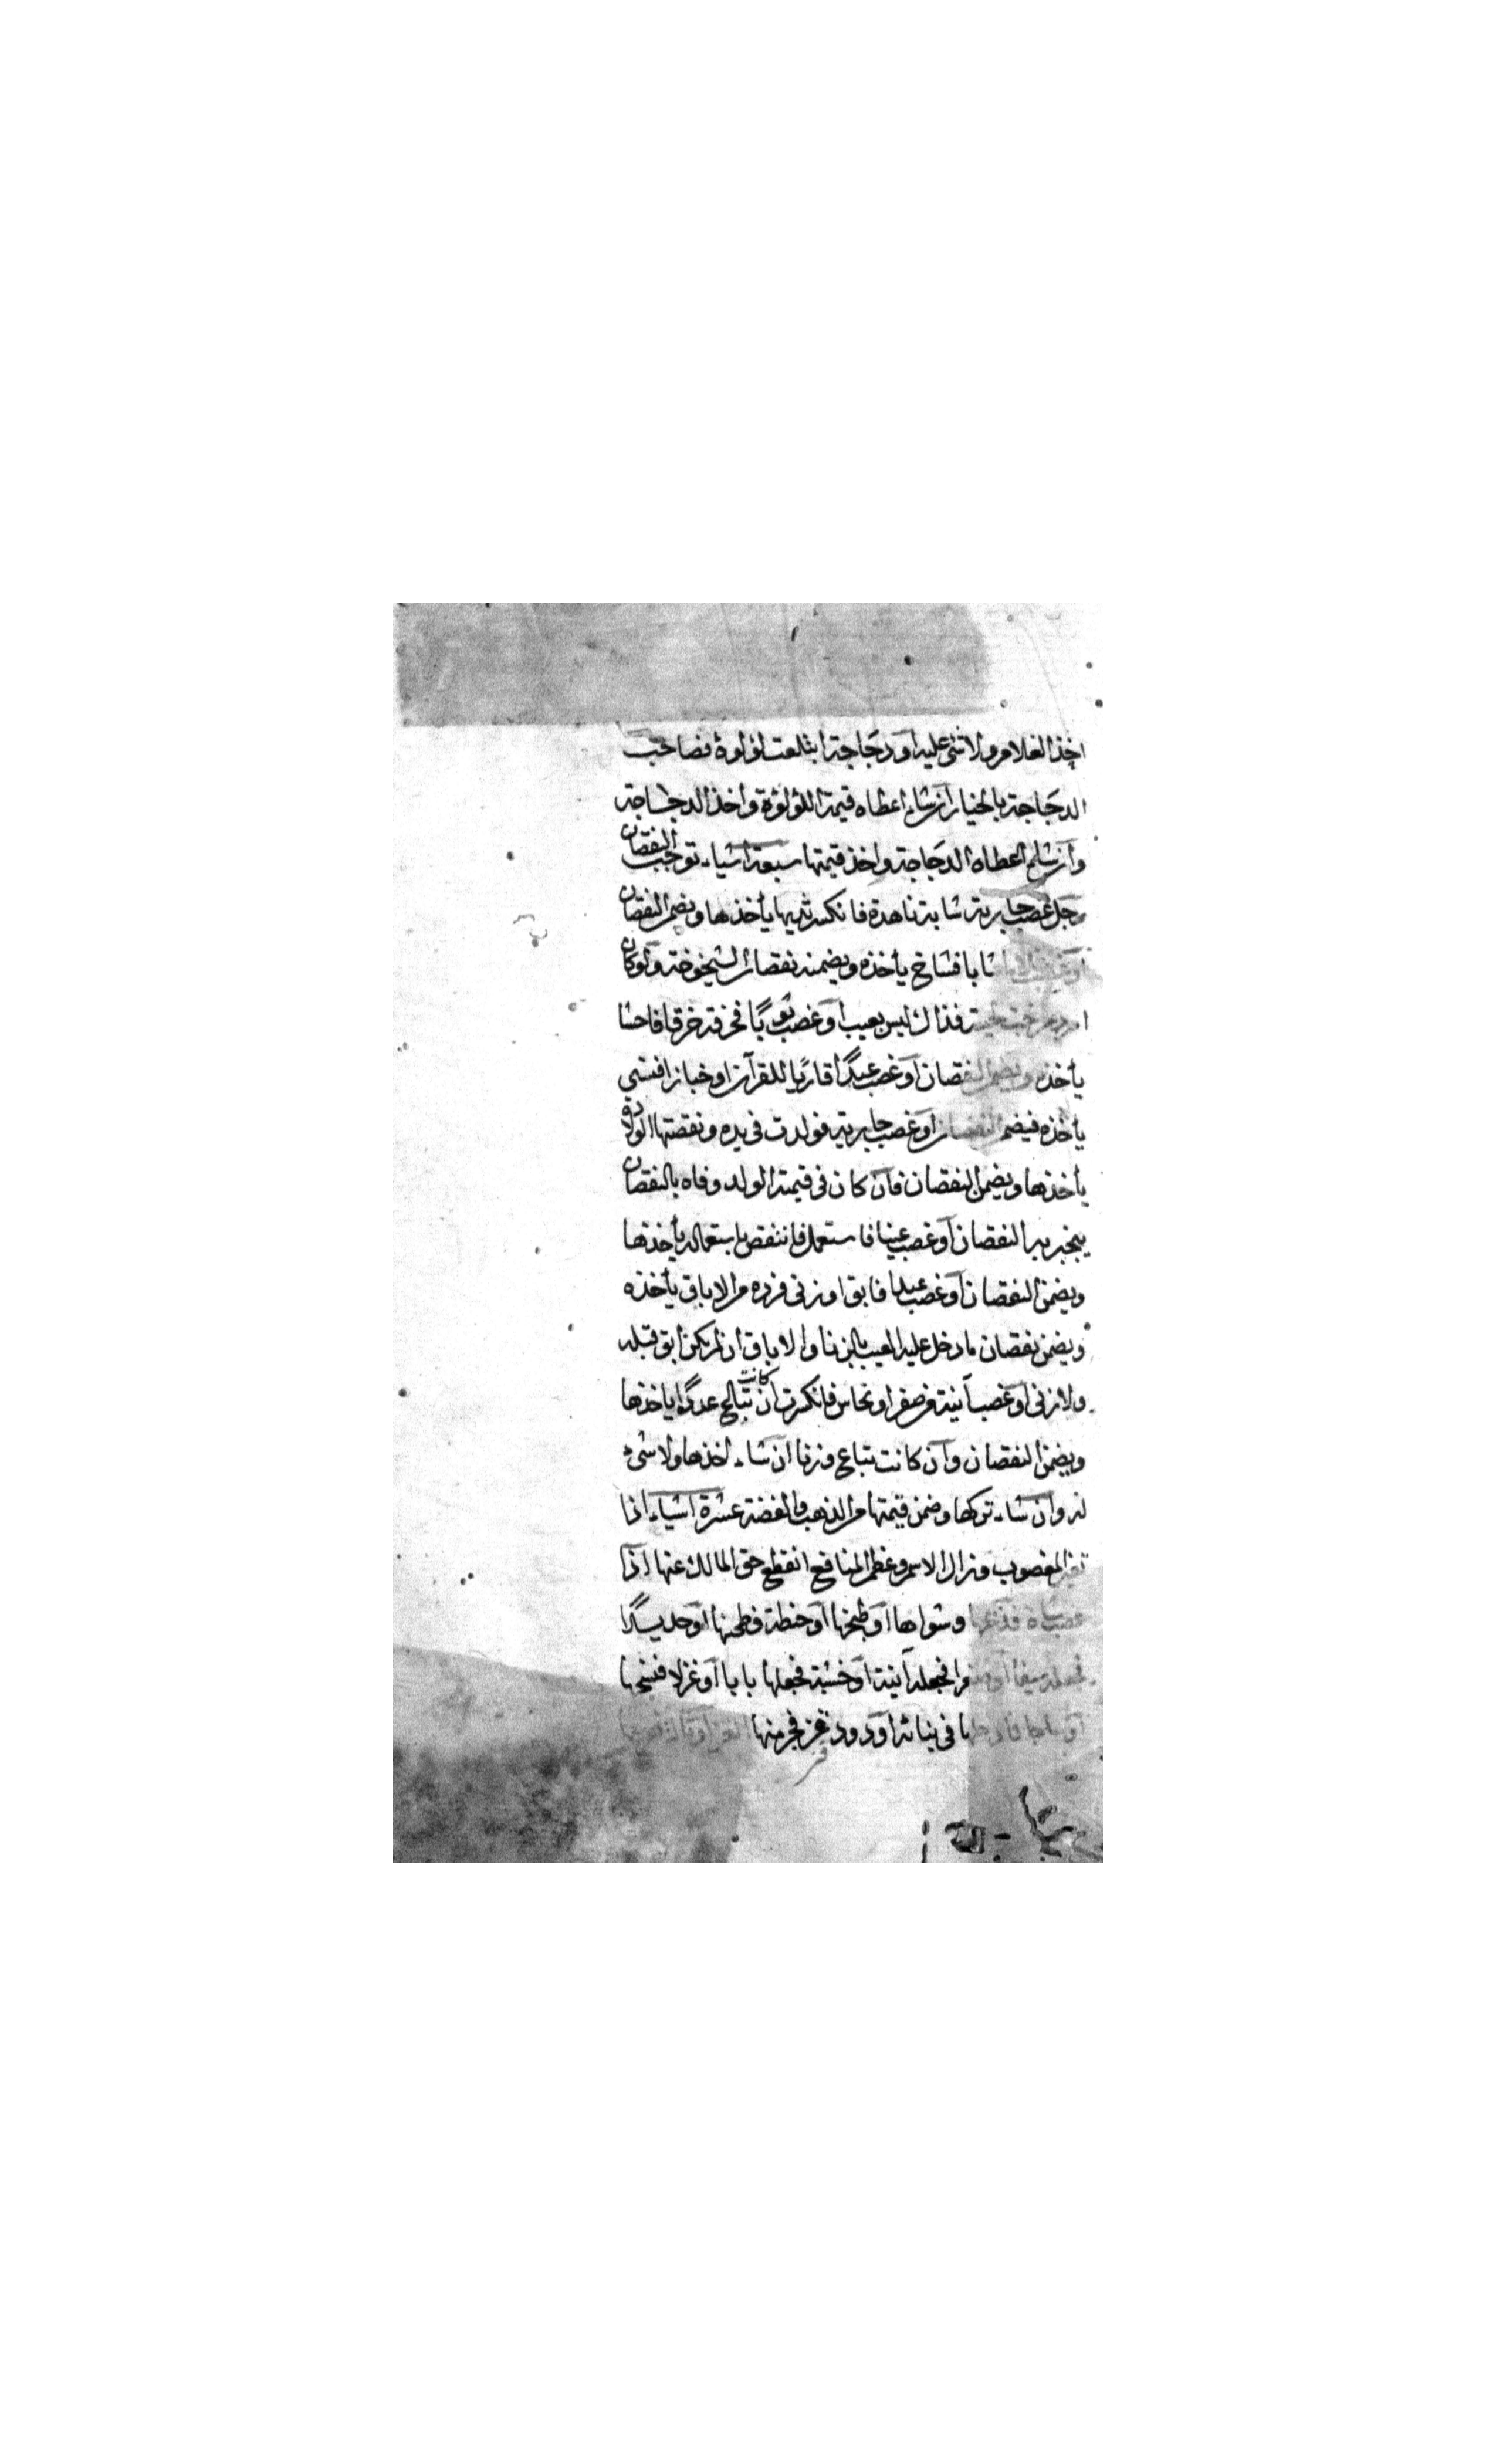 اخذ الغلام ولا شئ عليه او دجاجة ابتلعت لؤلوة فصاحب
الدجاجة بالخيار ان شاء اعطاه قيمة اللؤلؤة واخذ الدجاجة
وان شاء اعطاه الدجاجة واخذ قيمتها سبعة اشياء توجب النقصان
رجل غصب جارية شابة ناهدة فانكسر ثديها يأخذها ويضمن النقصان
او غصب غلاما شابا فشاخ يأخذه ويضمنه نقصان الشيخوخة ولو كان
امرد فذاك ليس بعيب او غصب ثوبا فخرقه خرقا فاحشا
يأخذه ويضمن النقصان او غصب عبدا قاريا للقرآن او خبازا فنسى
يأخذه فيضمن النقصان او غصب جارية فولدت فى يده ونقصتها الولادة
يأخذها ويضمن النقصان فان كان فى قيمة الولد وفاء بالنقصان
ينجبر به النقصان او غصب عينا فاستعمله فانتقص باستعماله يأخذها
ويضمن النقصان او غصب عبدا فابق او زنى فرده من الاباق يأخذه
ويضمن نقصان ما دخل عليه العيب بالزنا والاباق ان لم يكن ابق قبله
ولا زنى او غصب آنية من صفر او نحاس فانكسرت ان كانت تباع عددا ياخذها
ويضمن النقصان وان كانت تباع وزنا ان شاء اخذها ولا شئ
له وان شاء تركها وضمن قيمتها من الذهب والفضة عشرة اشياء اذا
تغير المغصوب وزال الاسم وعظم المنافع انقطع حق المالك عنها اذا
غصب شاة فذبحها وشواها او طبخها او حنطة فطحنها او حديدا
فجعله سيفا او صفرا فجعله آنية او خشبة فجعلها بابا او غزلا فنسجها
او ساجا فادخلها فى بنائه او دود قز فخرج منها القز